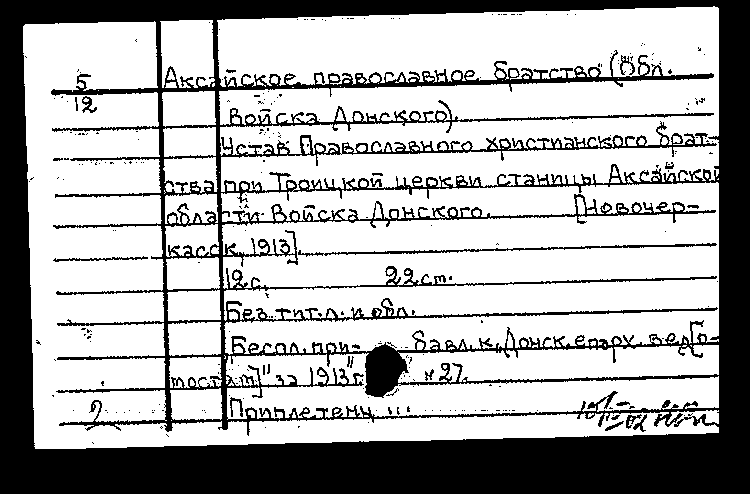 5 Аксайское православное братство (Обл.
12 Войска Донского).
Устав Православного христианского брат-
ства при Троицкой церкви станицы Аксайской
области Войска Донского. [Новочер-
касск, 1913].
12 с. 22 ст.
Без тит. л. и обл.
Беспл. при- бавл. к „Донск. епарх. вед[о-
мостям]" за 1913 г. №27.
Приплетены ...
2